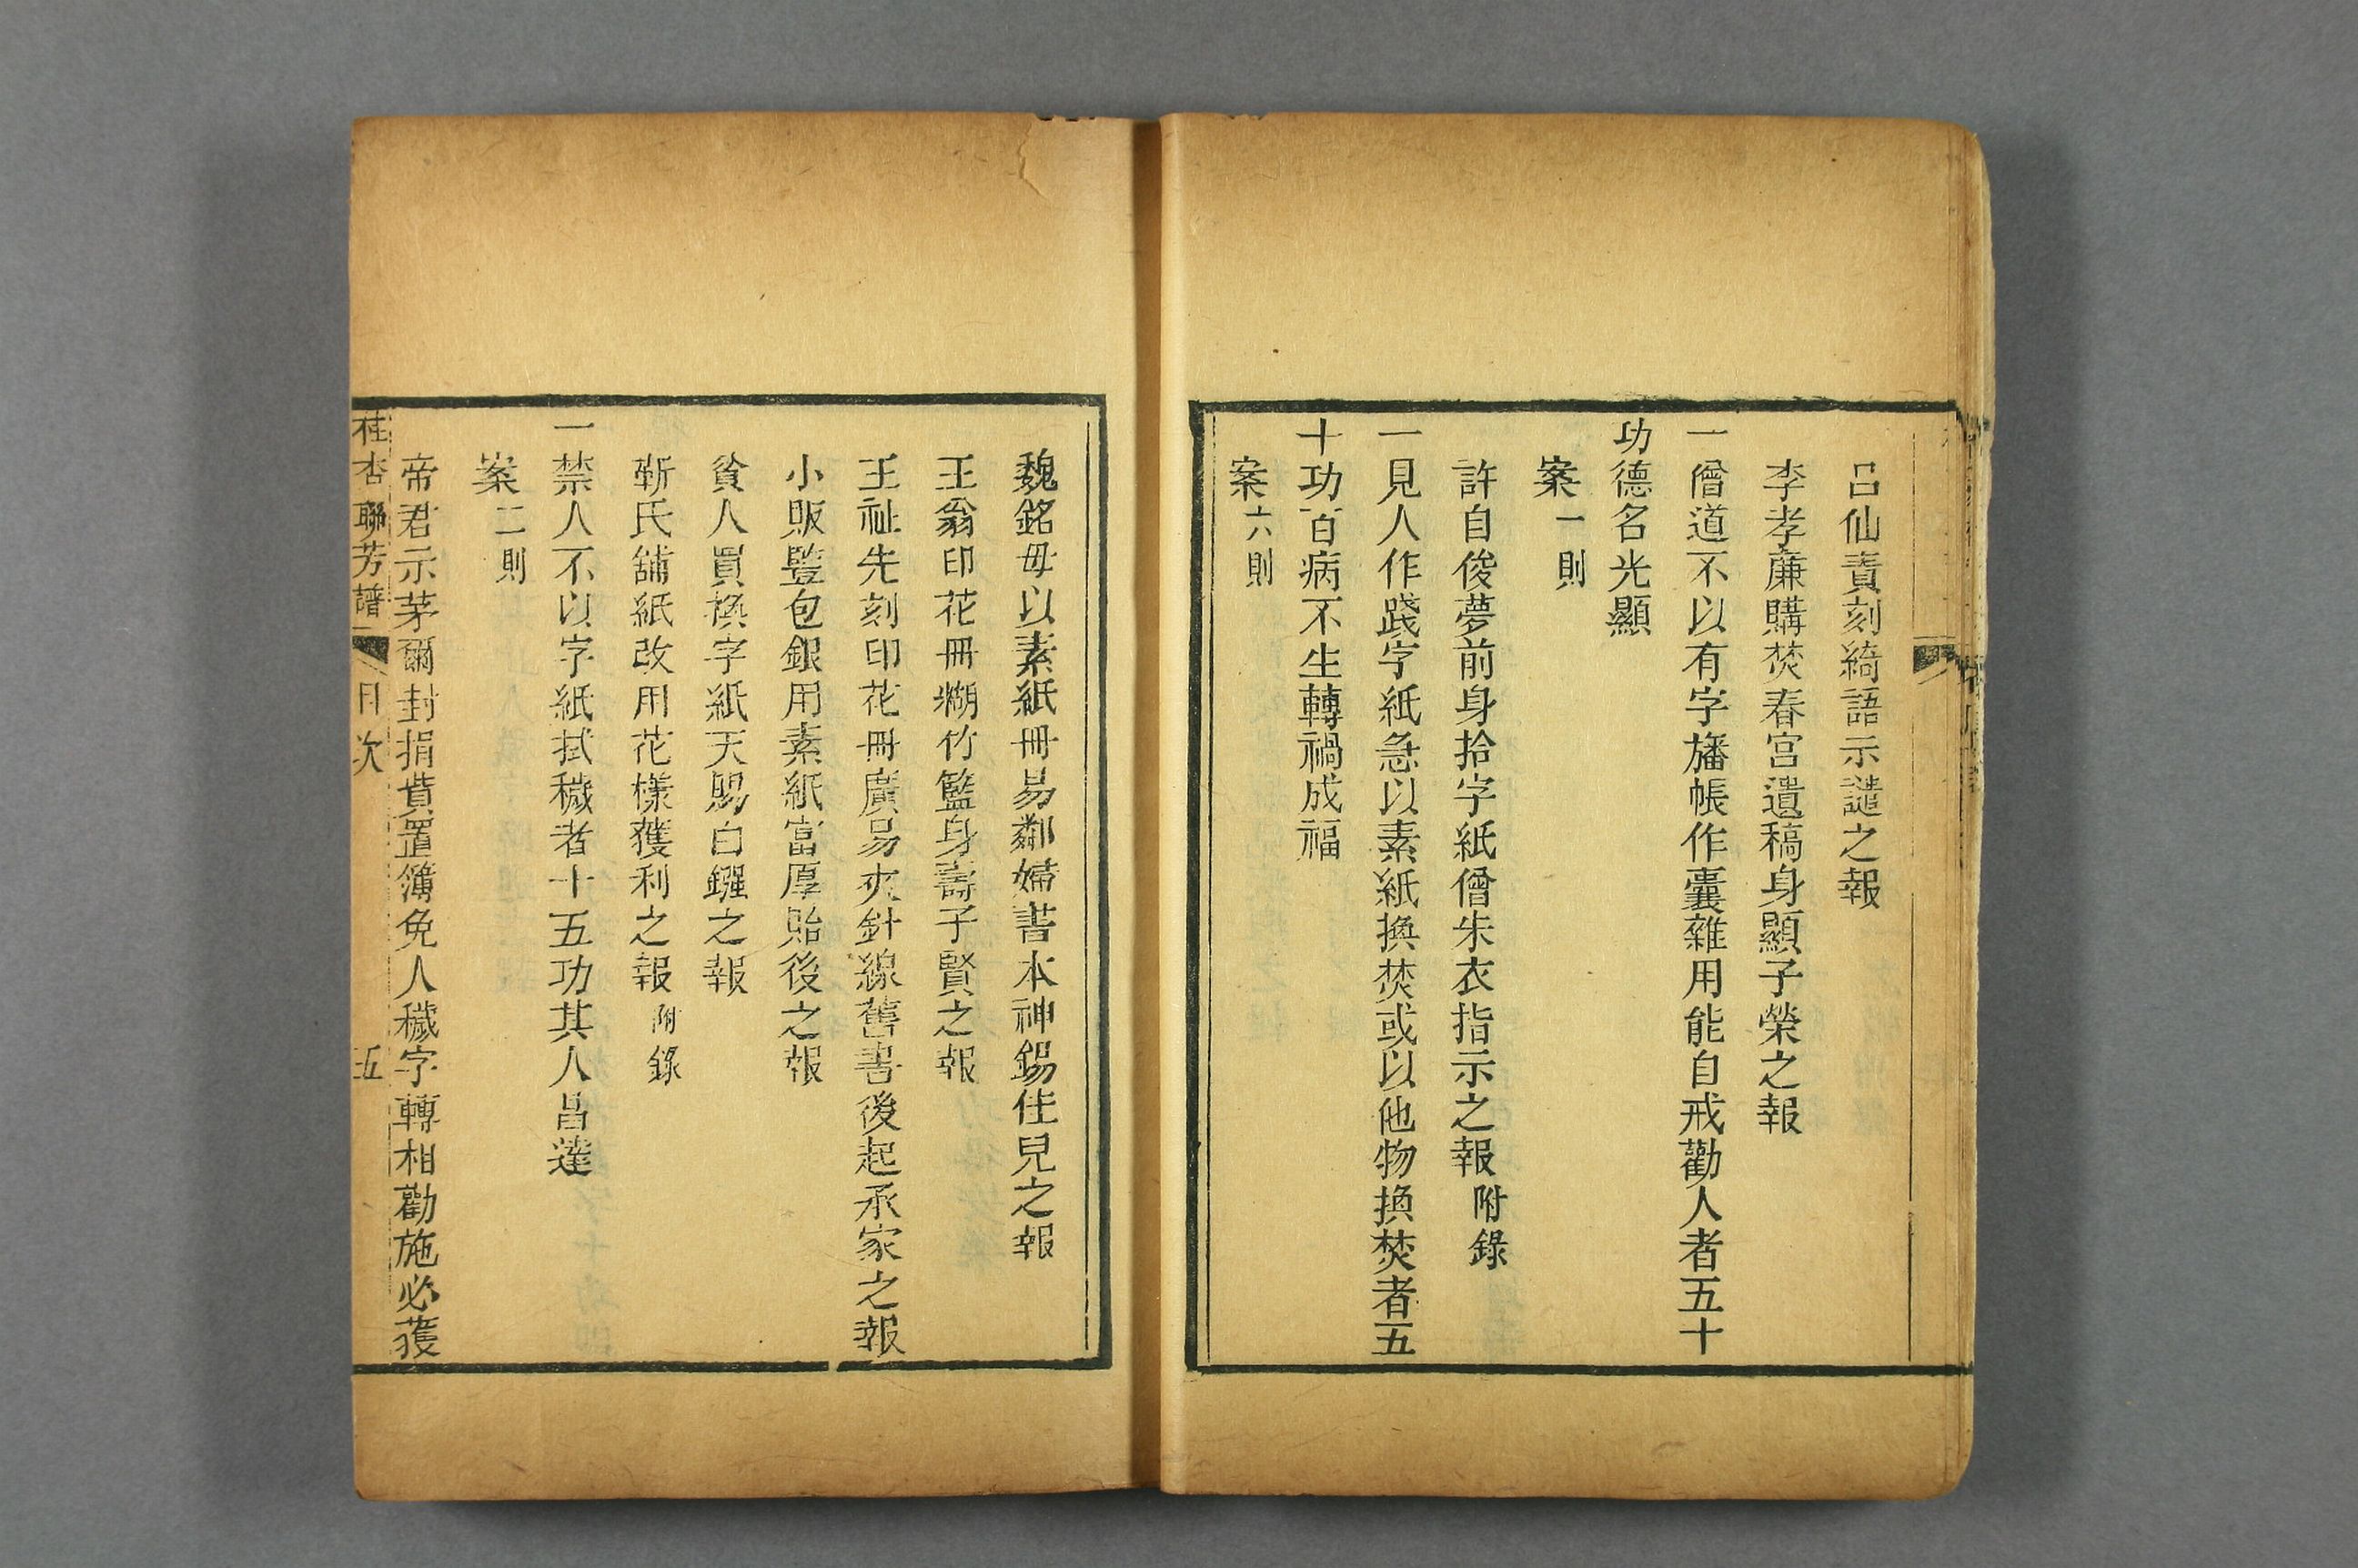 呂仙責刻綺語示譴之報
李孝廉購焚春宮遺稿身顯子榮之報
一僧道不以有字旛帳作囊雜用能自戒勸人者五十
功德名光顯
案一則
許自俊夢前身拾字紙僧朱衣指示之報附錄
一見人作踐字紙急以素紙換焚或以他物換焚者五
十功百病不生轉禍成福
案六則
魏銘母以素紙冊易鄰婦書本神錫佳兒之報
王翁印花冊糊竹籃身壽子賢之報
王祉先刻印花冊廣易夾針線舊書後起承家之報
小販豎包銀用素紙富厚貽後之報
貧人買換字紙天賜白鏹之報
靳氏舖紙改用花樣獲利之報附錄
一禁人不以字紙拭穢者十五功其人昌達
案二則
帝君示茅爾封捐貲置簿免人穢字轉相勸施必獲
桂杏聯芳譜 目次 五